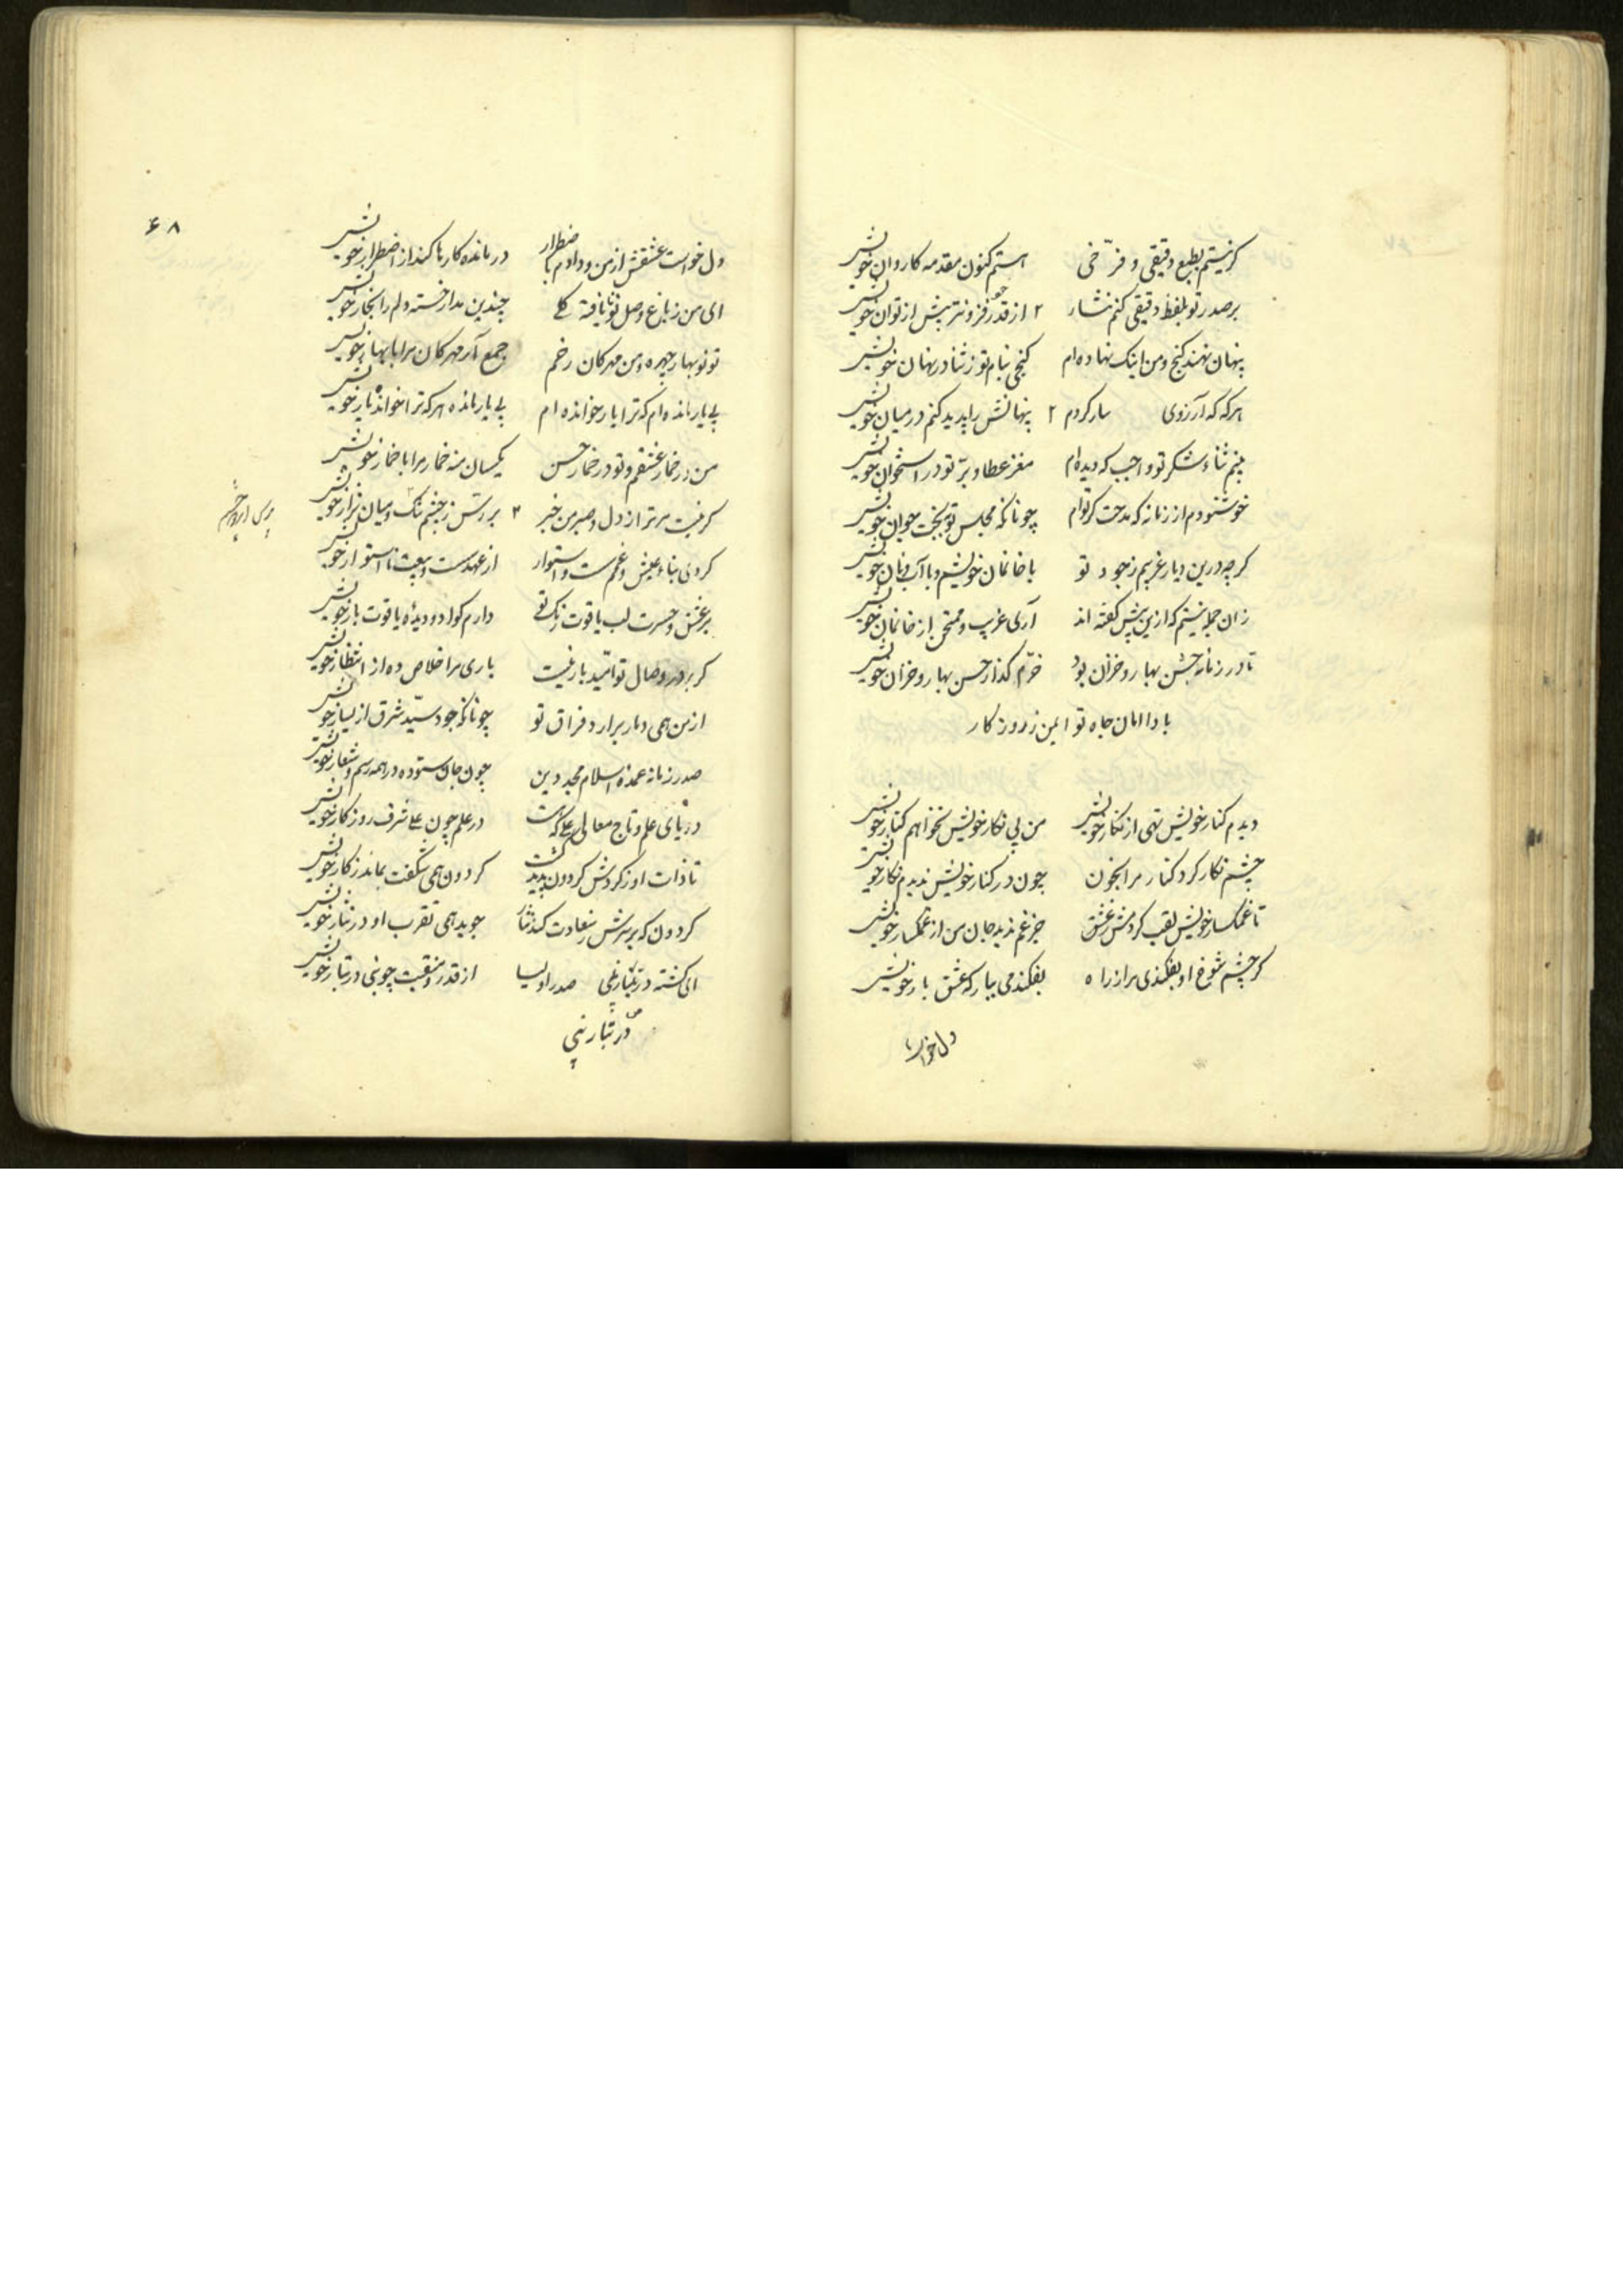 گر نیستم بطبع دقیقی و فرّخی استم کنون مقدمه کاروان خویش
بر صدر تو بلفظ دقیقی کنم نثار ۲ از قدر خود فزونتر بیش از توان خویش
پنهان نهند کنج و من اینک نهاده ام کنجی بنام تو ز ثنا در نهان خویش
هر که که آرزوی سار کردم ۲ پنهانش را پدید کنم در میان خویش
بینم ثناء و شکر تو واجب که دیده ام مغز عطا و برّ تو در استخوان خویش
خوشنودم از زمانه که مدحت کر توام چونانکه مجلس تو ببخت جوان خویش
کر چه درین دیار غریبم ز جود تو با خانمان خویشم و با آب و نان خویش
زان جمله نیستم که ازین پیش گفته اند آری غریب و ممتحن از خانمان خویش
تا در زمانه جشن بهار و خزان بود خرّم کذار حسن بهار و خزان خویش
بادا امان جاه تو ایمن ز روزکار
دیدم کنار خویش تهی از نکار خویش من بی نکار خویش نخواهم کنار خویش
چشم نکار کرد کنار مرا بخون چون در کنار خویش ندیدم نکار خویش
تا غمکسار خویش لقب کردمش ز عشق جز غم ندید جان من از غمکسار خویش
کر چشم شوخ او بفکندی مرا ز راه بفکندمی ببار که عشق بار خویش
دل خواست
۶۸
دل خواست عشقش از من و دادم باضطرار درمانده کارها کند از اضطرار خویش
ای من ز باغ وصل تو نایافته گلی چندین مدار خسته دلم را بخار خویش
تو نوبهار چهره و من مهرکان رخم جمع آر مهرکان مرا با بهار خویش
بی یار مانده ام که ترا یار خوانده ام بی یار مانده هر که ترا خواند یار خویش
من در خمار عشقم و تو در خمار حسن یکسان منه خمار مرا با خمار خویش
کر نیست مر ترا ز دل و صبر من خبر ۲ بررس ز چشم تنک و میان نزار خویش
کردی بناء عیش و غمم سست و استوار از عهد سست و بیعت نااستوار خویش
بر عشق و حسرت لب یاقوت رنک تو دارم کوا دو دیدهٔ یاقوت بار خویش
کر بر در وصال تو امّید بار نیست باری مرا خلاص ده از انتظار خویش
از من همی دمار برارد فراق تو چونانکه جود سیّد شرق از یسار خویش
صدر زمانه عمدهٔ اسلام مجد دین چون جان ستوده در همه رسم و شعار خویش
دریای علم و تاج معالی علی که هست در علم چون علی شرف روزکار خویش
تا ذات او ز کردش کردون پدید کشت کردون همی شکفت بماند ز کار خویش
کردون که بر سرش ز سعادت کند نثار جوید همی تقرب او در نثار خویش
ای کشته در تبار نبی صدر اولیا از قدر و منقبت چو نبی در تبار خویش
در تبار نبی